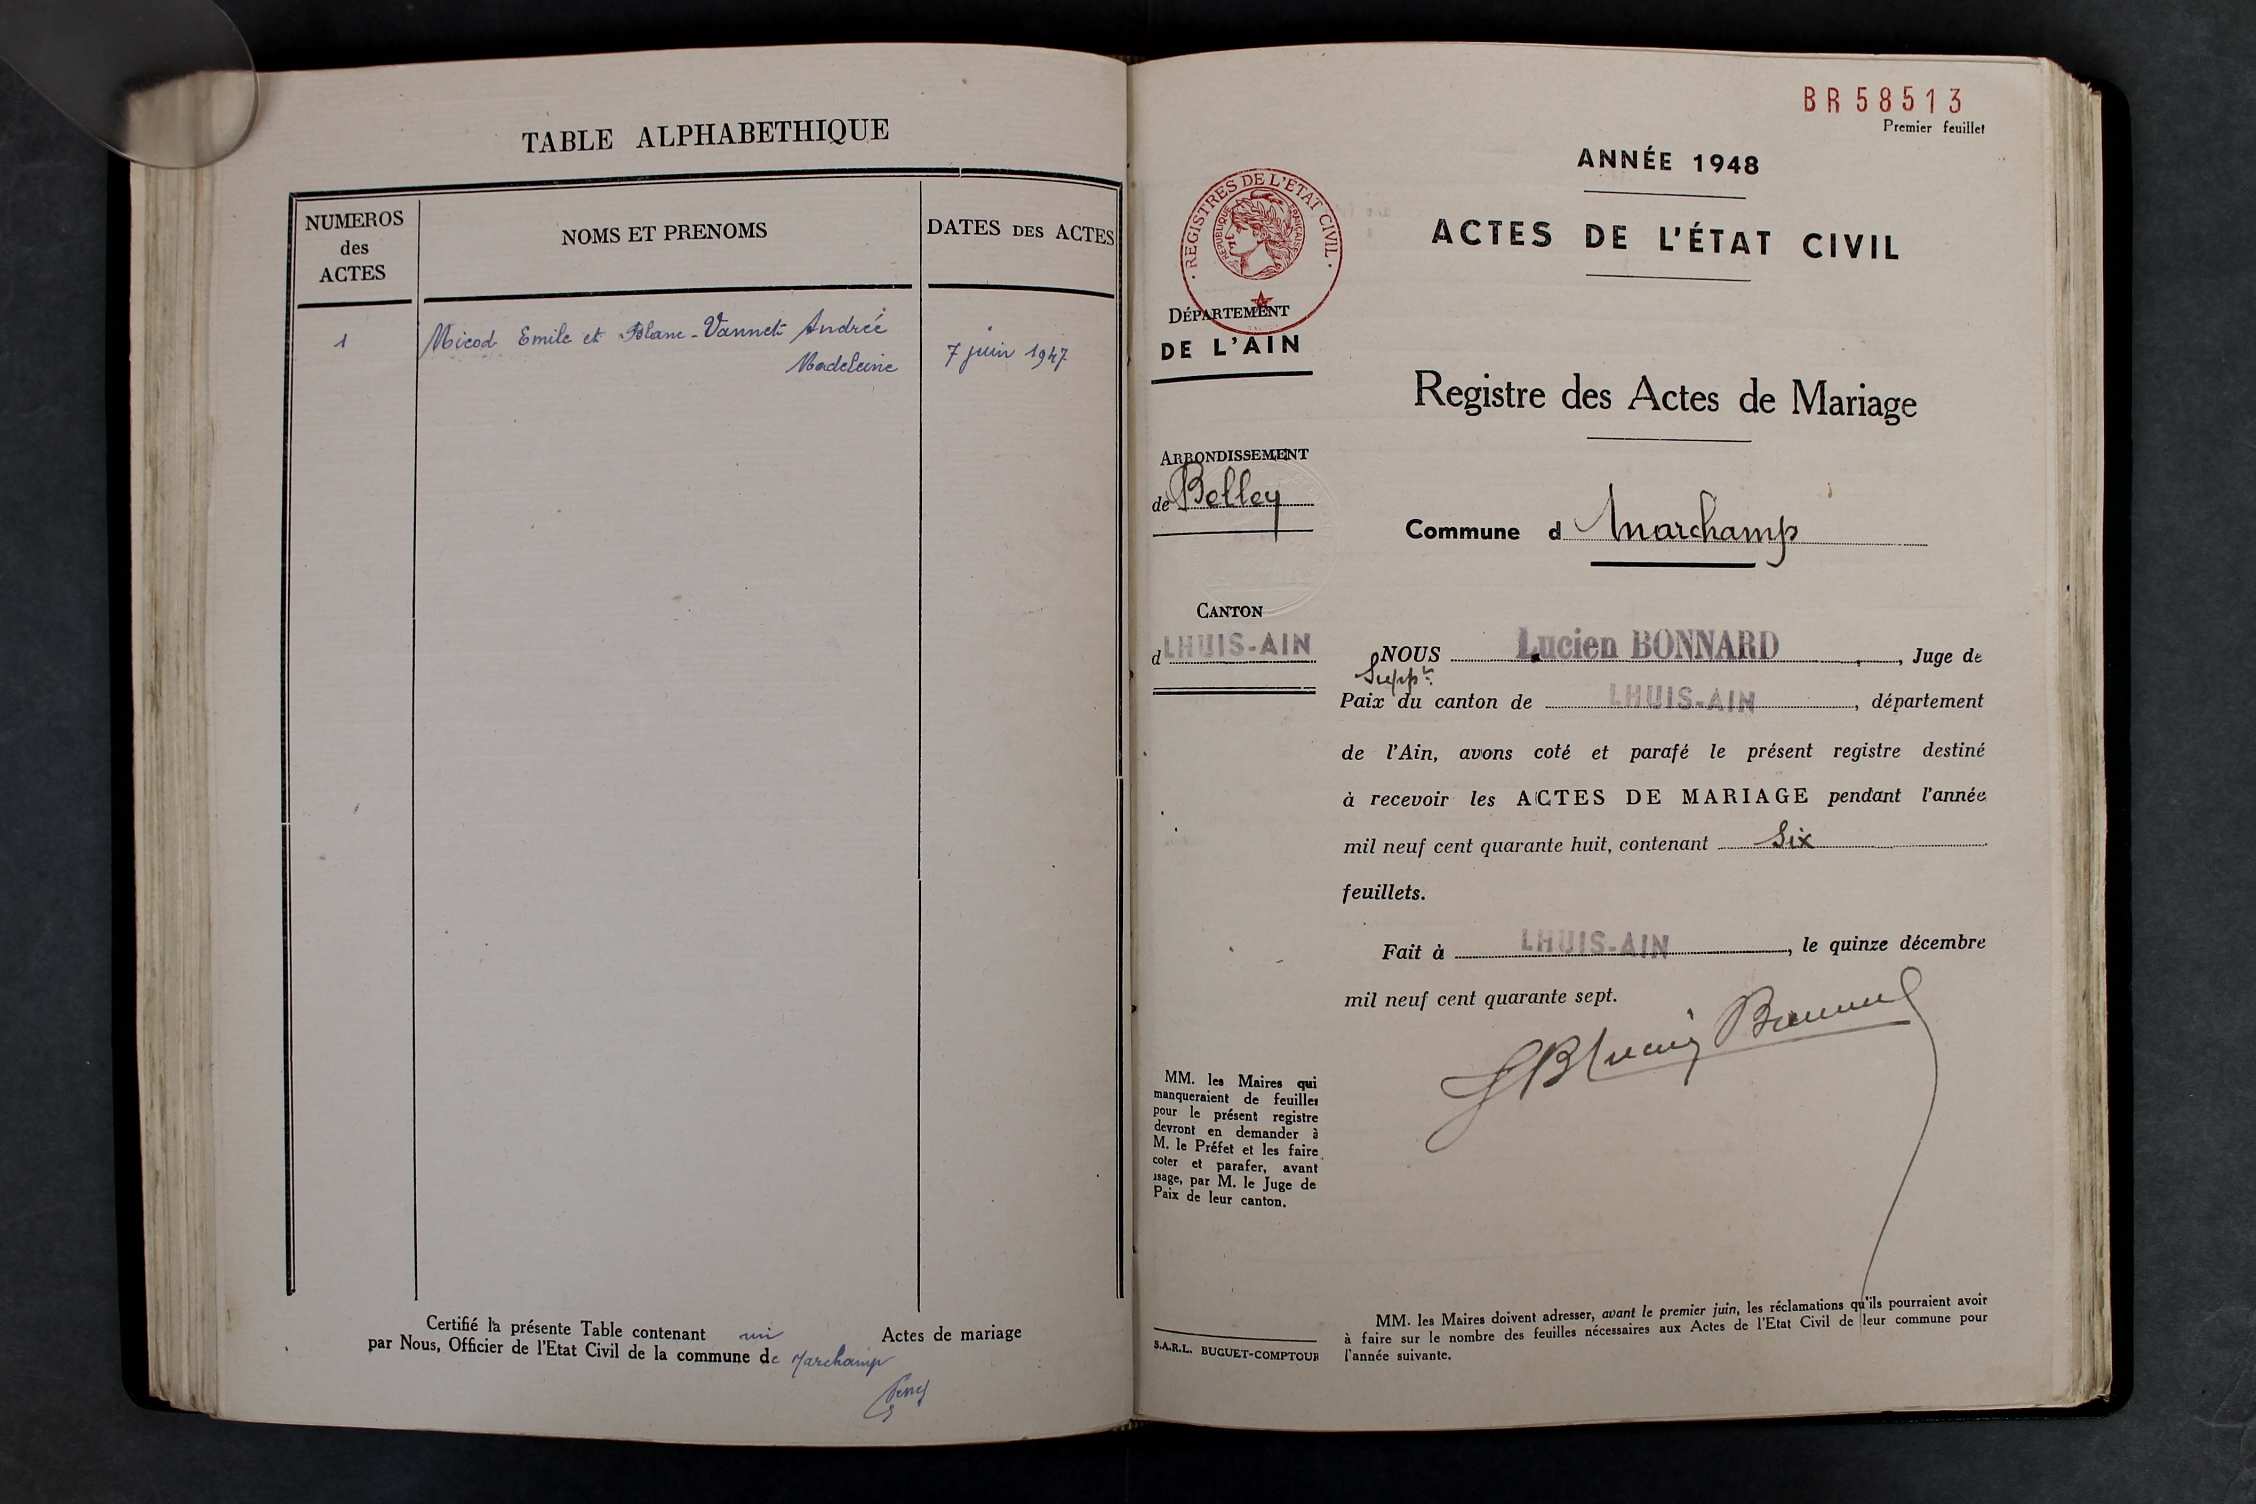 TABLE ALPHABETHIQUE
NUMEROS
des
ACTES
NOMS ET PRENOMS
DATES DES ACTES
1
Micod Emile et Blanc-Vannet Andrée
Madeleine
7 juin 1947
Certifié la présente Table contenant un Actes de mariage
par Nous, Officier de l'Etat Civil de la commune de Marchamp
BR58513
Premier feuillet
ANNÉE 1948
ACTES DE L'ÉTAT CIVIL
REGISTRES DE L'ETAT CIVIL
REPUBLIQUE FRANÇAISE
DÉPARTEMENT
DE L'AIN
Registre des Actes de Mariage
ARRONDISSEMENT
de Belley
Commune d Marchamp
CANTON
d LHUIS-AIN
NOUS Lucien BONNARD, Juge de
Suppt
Paix du canton de LHUIS-AIN, département
de l'Ain, avons coté et parafé le présent registre destiné
à recevoir les ACTES DE MARIAGE pendant l'année
mil neuf cent quarante huit, contenant Six
feuillets.
Fait à LHUIS-AIN, le quinze décembre
mil neuf cent quarante sept.
MM. les Maires qui
manqueraient de feuilles
pour le présent registre
devront en demander à
M. le Préfet et les faire
coter et parafer, avant
usage, par M. le Juge de
Paix de leur canton.
S.A.R.L. BUGUET-COMPTOUR
MM. les Maires doivent adresser, avant le premier juin, les réclamations qu'ils pourraient avoir
à faire sur le nombre des feuilles nécessaires aux Actes de l'Etat Civil de leur commune pour
l'année suivante.